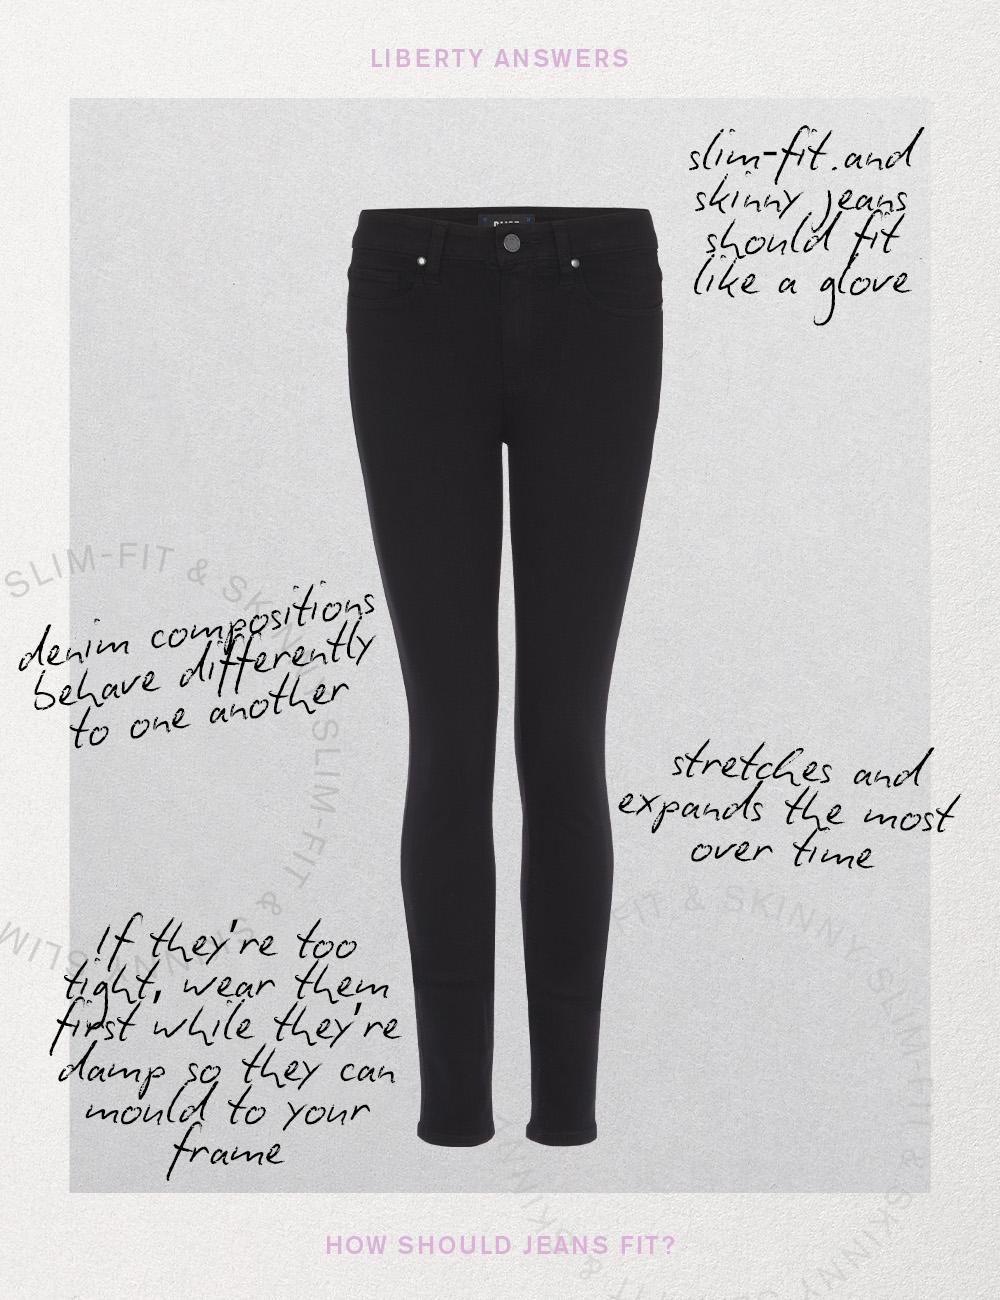 LIBERTY ANSWERS
slim-fit and
skinny jeans
should fit
like a glove
SLIM-FIT & SKINNY SLIM-FIT & SKINNY SLIM
denim compositions
behave differently
to one another
stretches and
expands the most
over time
FIT & SKINNY SLIM-FIT & SKINNY
If they're too
tight, wear them
first while they're
damp so they can
mould to your
frame
HOW SHOULD JEANS FIT?